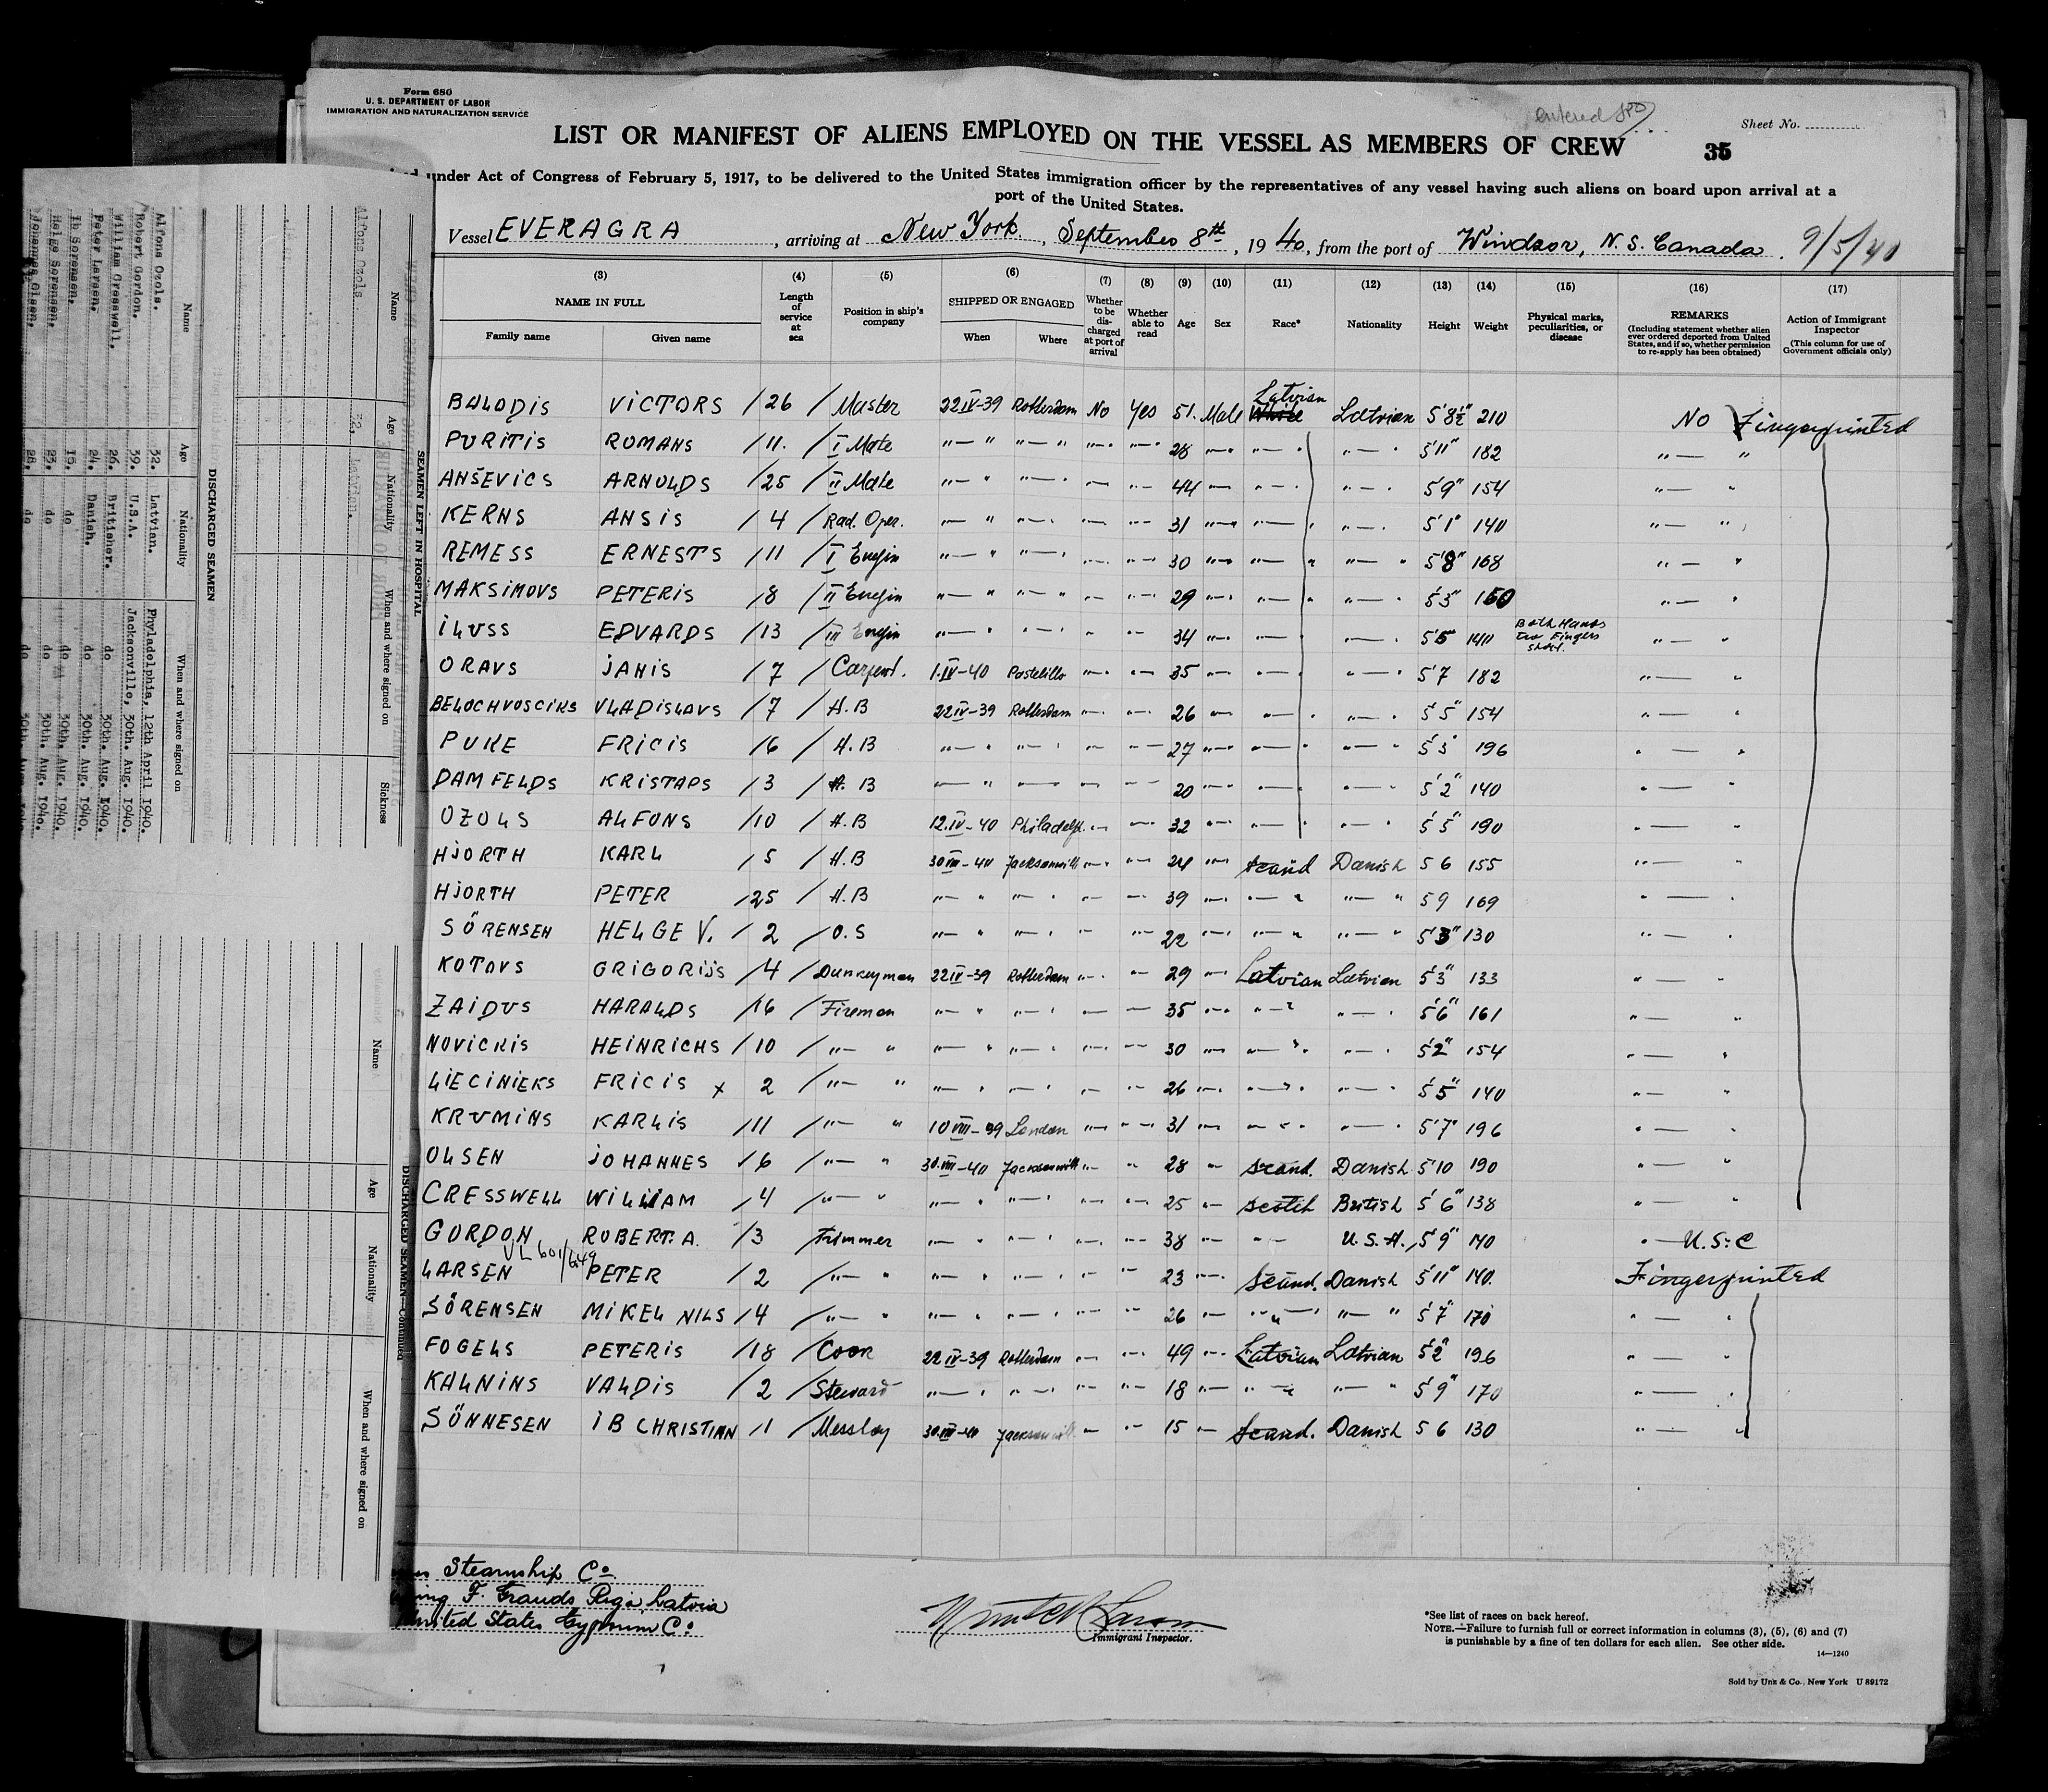 Form 680
U. S. DEPARTMENT OF LABOR
IMMIGRATION AND NATURALIZATION SERVICE
entered
Sheet No.
LIST OR MANIFEST OF ALIENS EMPLOYED ON THE VESSEL AS MEMBERS OF CREW 35
under Act of Congress of February 5, 1917, to be delivered to the United States immigration officer by the representatives of any vessel having such aliens on board upon arrival at a
port of the United States.
Vessel EVERAGRA, arriving at New York, September 8th, 1940, from the port of Windsor, N. S. Canada. 9/5/40
(3) (4) (5) (6) (7) (8) (9) (10) (11) (12) (13) (14) (15) (16) (17)
NAME IN FULL Length of service at sea Position in ship's company SHIPPED OR ENGAGED Whether to be discharged at port of arrival Whether able to read Age Sex Race* Nationality Height Weight Physical marks, peculiarities, or disease REMARKS (Including statement whether alien ever ordered deported from United States, and if so, whether permission to re-apply has been obtained) Action of Immigrant Inspector (This column for use of Government officials only)
Family name Given name When Where
BALODIS VICTORS / 26 / Master 22 IV-39 Rotterdam No Yes 51. Male White Latvian Latvian 5'8½" 210 No Fingerprinted
PURITIS ROMANS / 11. / I Mate "—" "—" "—" "—" 28 "—" "—" "—" 5'11" 182 "—"
ANŠEVICS ARNOLDS / 25 / II Mate "—" "—" "—" "—" 44 "—" "—" "—" 5'9" 154 "—"
KERNS ANSIS / 4 / Rad. Oper. "—" "—" "—" "—" 31 "—" "—" "—" 5'1" 140 "—"
REMESS ERNESTS / 11 / I Engin "—" "—" "—" "—" 30 "—" "—" "—" 5'8" 168 "—"
MAKSIMOVS PETERIS / 8 / II Engin "—" "—" "—" "—" 29 "—" "—" "—" 5'3" 160 "—"
ILUSS EDVARDS / 13 / III Engin "—" "—" "—" "—" 34 "—" "—" "—" 5'5" 140 Both Hands two Fingers short. "—"
ORAVS JANIS / 7 / Carpent. 1.IV-40 Pastelillo "—" "—" 35 "—" "—" "—" 5'7 182 "—"
BELOCHVOSCIKS VLADISLAVS / 7 / A.B 22 IV-39 Rotterdam "—" "—" 26 "—" "—" "—" 5'5" 154 "—"
PUKE FRICIS / 6 / A.B "—" "—" "—" "—" 27 "—" "—" "—" 5'3" 196 "—"
DAMFELDS KRISTAPS / 3 / A.B "—" "—" "—" "—" 20 "—" "—" "—" 5'2" 140 "—"
OZOLS ALFONS / 10 / A.B 12.IV-40 Philadelf. "—" "—" 32 "—" "—" "—" 5'5" 190 "—"
HJORTH KARL / 5 / A.B 30 VIII-40 Jacksonvill "—" "—" 24 "—" Scand Danish 5 6 155 "—"
HJORTH PETER / 25 / A.B "—" "—" "—" "—" 39 "—" "—" "—" 5 9 169 "—"
SÖRENSEN HELGE V. / 2 / O.S "—" "—" "—" "—" 22 "—" "—" "—" 5'3" 130 "—"
KOTOVS GRIGORIJS / 4 / Dunkeyman 22 IV-39 Rotterdam "—" "—" 29 "—" Latvian Latvian 5'3" 133 "—"
ZAIDUS HARALDS / 16 / Fireman "—" "—" "—" "—" 35 "—" "—" "—" 5'6" 161 "—"
NOVICKIS HEINRICHS / 10 / "—" "—" "—" "—" "—" 30 "—" "—" "—" 5'2" 154 "—"
LIECINIEKS FRICIS x 2 / "—" "—" "—" "—" "—" 26 "—" "—" "—" 5'5" 140 "—"
KRUMINS KARLIS / 11 / "—" 10 VIII-39 London "—" "—" 31 "—" "—" "—" 5'7" 196 "—"
OLSEN JOHANNES / 6 / "—" 30.VIII-40 Jacksonvill "—" "—" 28 "—" Scand. Danish 5'10 190 "—"
CRESSWELL WILLIAM / 4 / "—" "—" "—" "—" "—" 25 "—" Scotch British 5'6" 138 "—"
GORDON ROBERT. A. / 3 Trimmer "—" "—" "—" "—" 38 "—" "—" U.S.A. 5'9" 140 "—" U.S.C
VL 601/649
LARSEN PETER / 2 / "—" "—" "—" "—" "—" 23 "—" Scand. Danish 5'11" 140. Fingerprinted
SÖRENSEN MIKEL NILS / 4 / "—" "—" "—" "—" "—" 26 "—" "—" "—" 5'7" 170 "—"
FOGELS PETERIS / 18 / Cook 22 IV-39 Rotterdam "—" "—" 49 "—" Latvian Latvian 5'2" 196 "—"
KALNINS VALDIS / 2 / Steward "—" "—" "—" "—" 18 "—" "—" "—" 5'9" 170 "—"
SÖNNESEN IB CHRISTIAN / 1 / Messboy 30.VIII-40 Jacksonvill. "—" "—" 15 "—" Scand. Danish 5 6 130 "—"
Steamship Co.
F. Grauds Riga, Latvia
United States Gypsum Co.
Immigrant Inspector.
*See list of races on back hereof.
NOTE.—Failure to furnish full or correct information in columns (3), (5), (6) and (7)
is punishable by a fine of ten dollars for each alien. See other side.
14—1240
Sold by Unz & Co., New York U 89172
SEAMEN LEFT IN HOSPITAL
Name Age Nationality When and where signed on Sickness
Alfons Ozols 32, Latvian.
DISCHARGED SEAMEN
Name Age Nationality When and where signed on
Alfons Ozols. 32. Latvian. Phyladelphia, 12th April 1940.
Robert Gordon. 39. U.S.A. Jacksonville, 30th. Aug. 1940.
William Cresswell, 26. Britisher. do 30th. Aug. 1940.
Peter Larsen. 24. Danish. do 30th. Aug. 1940.
Ib Sorensen. 15. do do 30th. Aug. 1940.
Helge Sorensen. 23. do do 30th. Aug. 1940.
Johannes Olsen. 28. do do 30th. Aug. 1940.
DISCHARGED SEAMEN—Continued
Name Age Nationality When and where signed on